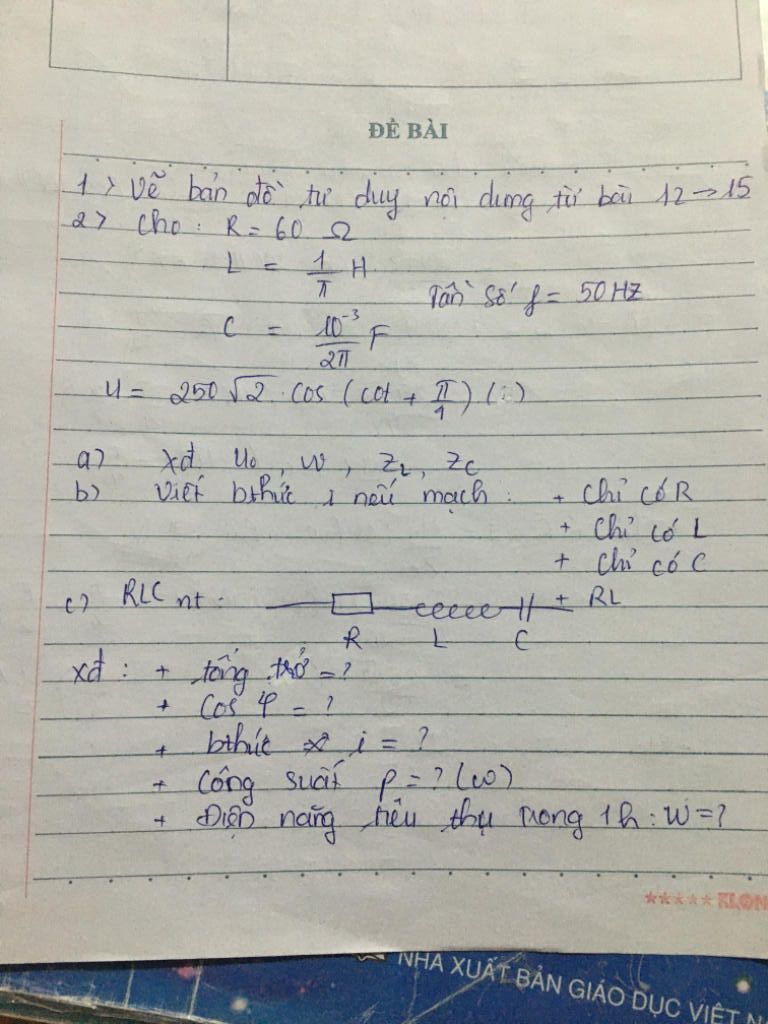 ĐỀ BÀI
1> Vẽ bản đồ tư duy nội dung từ bài 12→15
2> Cho: R = 60 Ω
L = 1/π H
Tần số f = 50 HZ
C = 10⁻³/2π F
u = 250√2 . cos (ωt + π/1) ( )
a) xđ u₀, w, ZL, ZC
b) Viết bthức i nếu mạch: + Chỉ có R
+ Chỉ có L
+ Chỉ có C
+ RL
c) RLC nt:
R L C
xđ: + tổng trở = ?
+ Cos φ = ?
+ bthức i = ?
+ Công suất p = ? (w)
+ Điện năng tiêu thụ trong 1h: W = ?
★★★★★ KLON
NHÀ XUẤT BẢN GIÁO DỤC VIỆT N